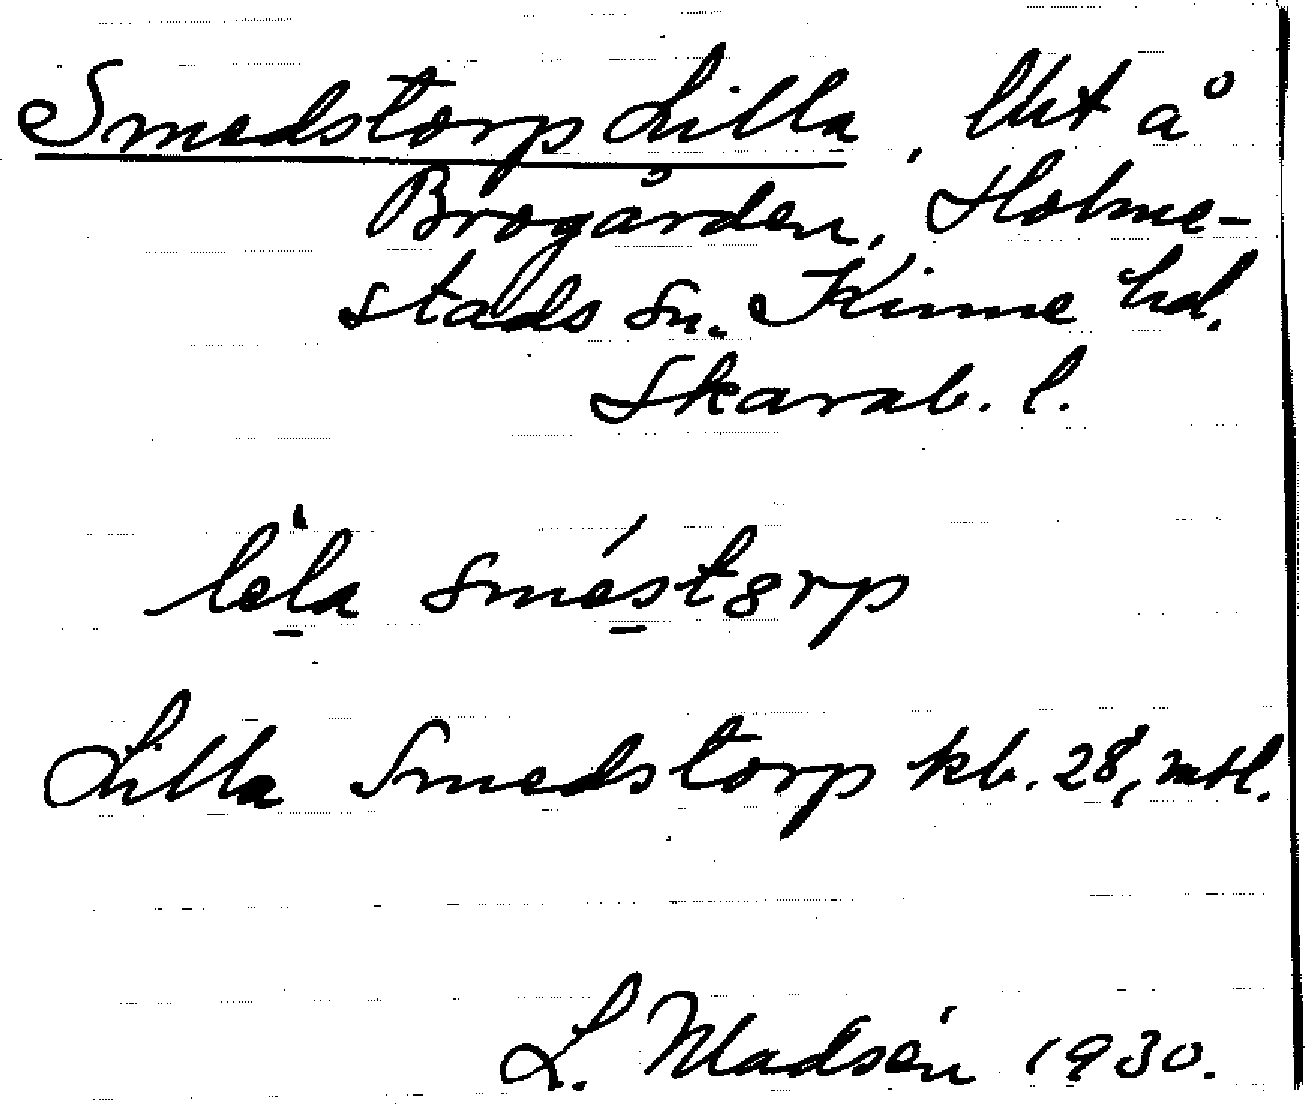 Smedstorp Lilla, lht å
Brogården, Holme-
stads sn. Kinne hd.
Skarab. l.
lela sméstorp
Lilla Smedstorp kb. 28, mtl.
L. Madsén 1930.